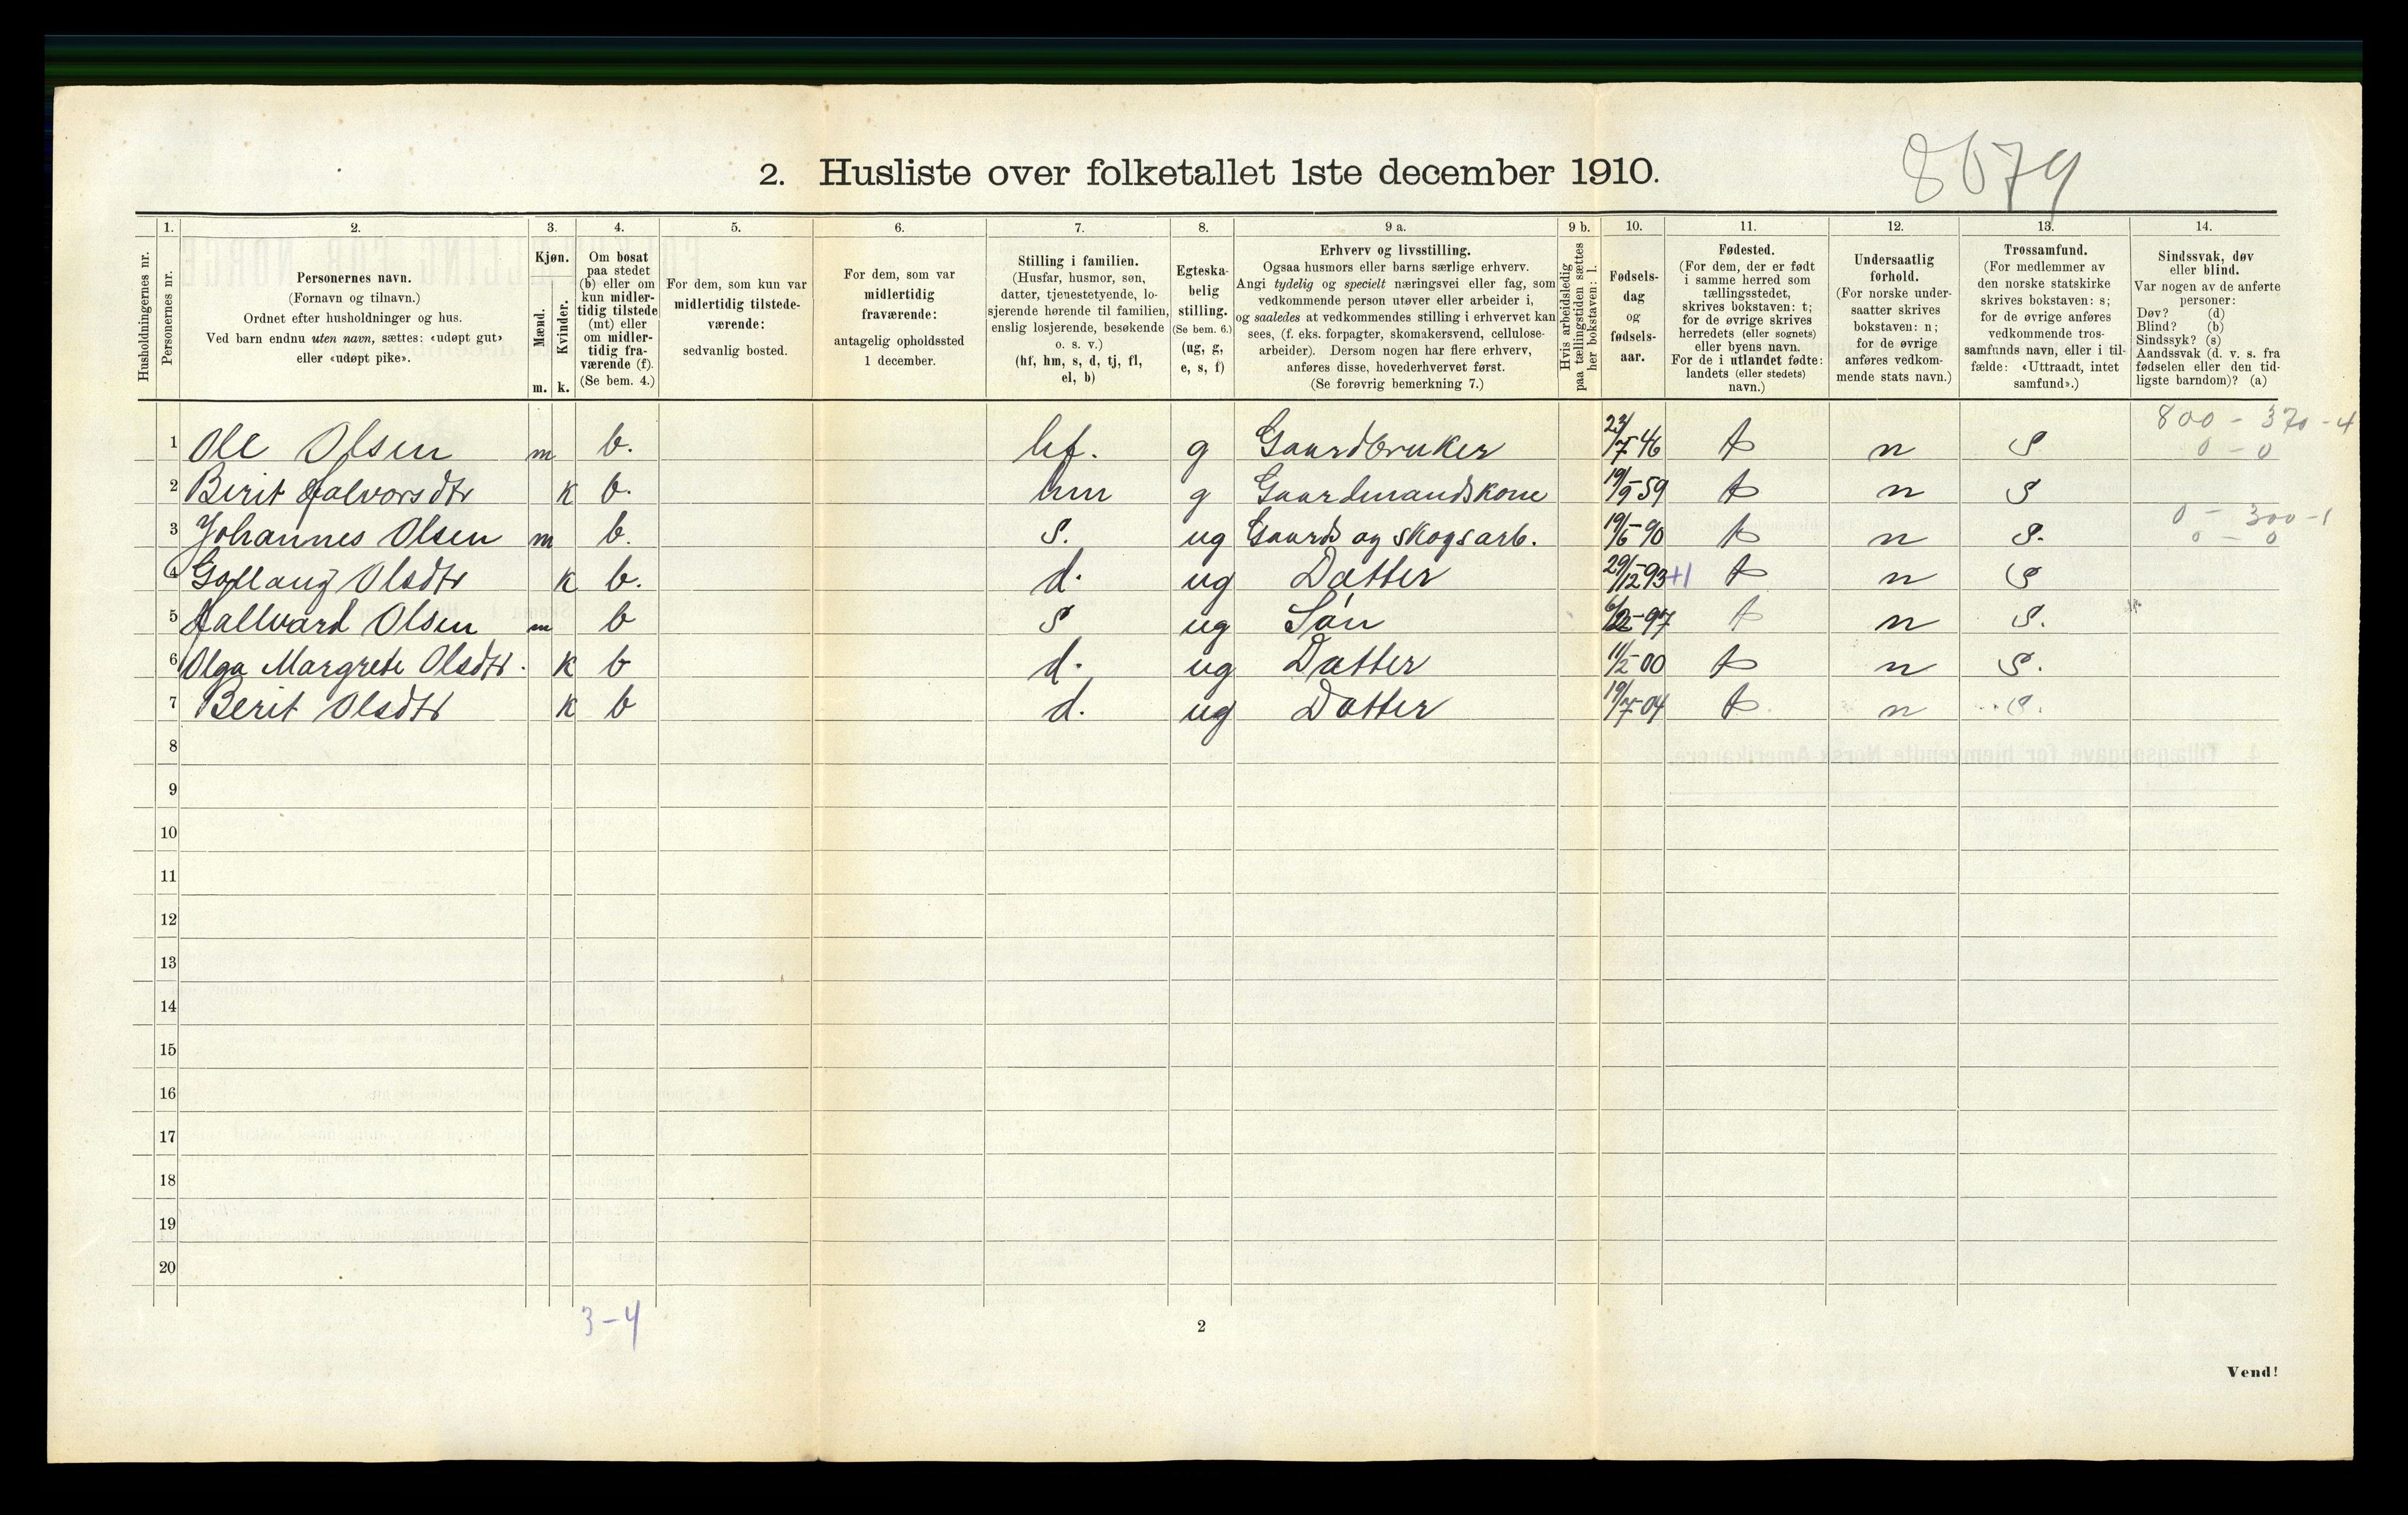 8679
2. Husliste over folketallet 1ste december 1910.
Husholdningernes nr.
1.
Personernes nr.
2.
Personernes navn.
(Fornavn og tilnavn.)
Ordnet efter husholdninger og hus.
Ved barn endnu uten navn, sættes: «udøpt gut»
eller «udøpt pike».
3.
Kjøn.
Mænd.
Kvinder.
m. k.
4.
Om bosat
paa stedet
(b) eller om
kun midler-
tidig tilstede
(mt) eller
om midler-
tidig fra-
værende (f).
(Se bem. 4.)
5.
For dem, som kun var
midlertidig tilstede-
værende:
sedvanlig bosted.
6.
For dem, som var
midlertidig
fraværende:
antagelig opholdssted
1 december.
7.
Stilling i familien.
(Husfar, husmor, søn,
datter, tjenestetyende, lo-
sjerende hørende til familien,
enslig losjerende, besøkende
o. s. v.)
(hf, hm, s, d, tj, fl,
el, b)
8.
Egteska-
belig
stilling.
(Se bem. 6.)
(ug, g,
e, s, f)
9 a.
Erhverv og livsstilling.
Ogsaa husmors eller barns særlige erhverv.
Angi tydelig og specielt næringsvei eller fag, som
vedkommende person utøver eller arbeider i,
og saaledes at vedkommendes stilling i erhvervet kan
sees, (f. eks. forpagter, skomakersvend, cellulose-
arbeider). Dersom nogen har flere erhverv,
anføres disse, hovederhvervet først.
(Se forøvrig bemerkning 7.)
9 b.
Hvis arbeidsledig
paa tællingstiden sættes
her bokstaven: l.
10.
Fødsels-
dag
og
fødsels-
aar.
11.
Fødested.
(For dem, der er født
i samme herred som
tællingsstedet,
skrives bokstaven: t;
for de øvrige skrives
herredets (eller sognets)
eller byens navn.
For de i utlandet fødte:
landets (eller stedets)
navn.)
12.
Undersaatlig
forhold.
(For norske under-
saatter skrives
bokstaven: n;
for de øvrige
anføres vedkom-
mende stats navn.)
13.
Trossamfund.
(For medlemmer av
den norske statskirke
skrives bokstaven: s;
for de øvrige anføres
vedkommende tros-
samfunds navn, eller i til-
fælde: «Uttraadt, intet
samfund».)
14.
Sindssvak, døv
eller blind.
Var nogen av de anførte
personer:
Døv? (d)
Blind? (b)
Sindssyk? (s)
Aandssvak (d. v. s. fra
fødselen eller den tid-
ligste barndom)? (a)
1 Ole Olsen m b. hf. g Gaardbruker 23/7-46 t n s 800 - 370 - 4
0 - 0
2 Berit Halvorsdtr k b. hm g Gaardmandskone 19/9-59 t n s
3 Johannes Olsen m b. s. ug Gaards og skogsarb. 19/6-90 t n s. 0 - 300 - 1
0 - 0
4 Olsdtr k b. d. ug Datter 29/12-93 +1 t n s
5 Hallvard Olsen m b s ug Søn 6/2-97 t n s.
6 Olga Margrete Olsdtr. k b d. ug Datter 11/2-00 t n s.
7 Berit Olsdtr k b d. ug Datter 19/7-04 t n s.
8
9
10
11
12
13
14
15
16
17
18
19
20
3-4
2
Vend!